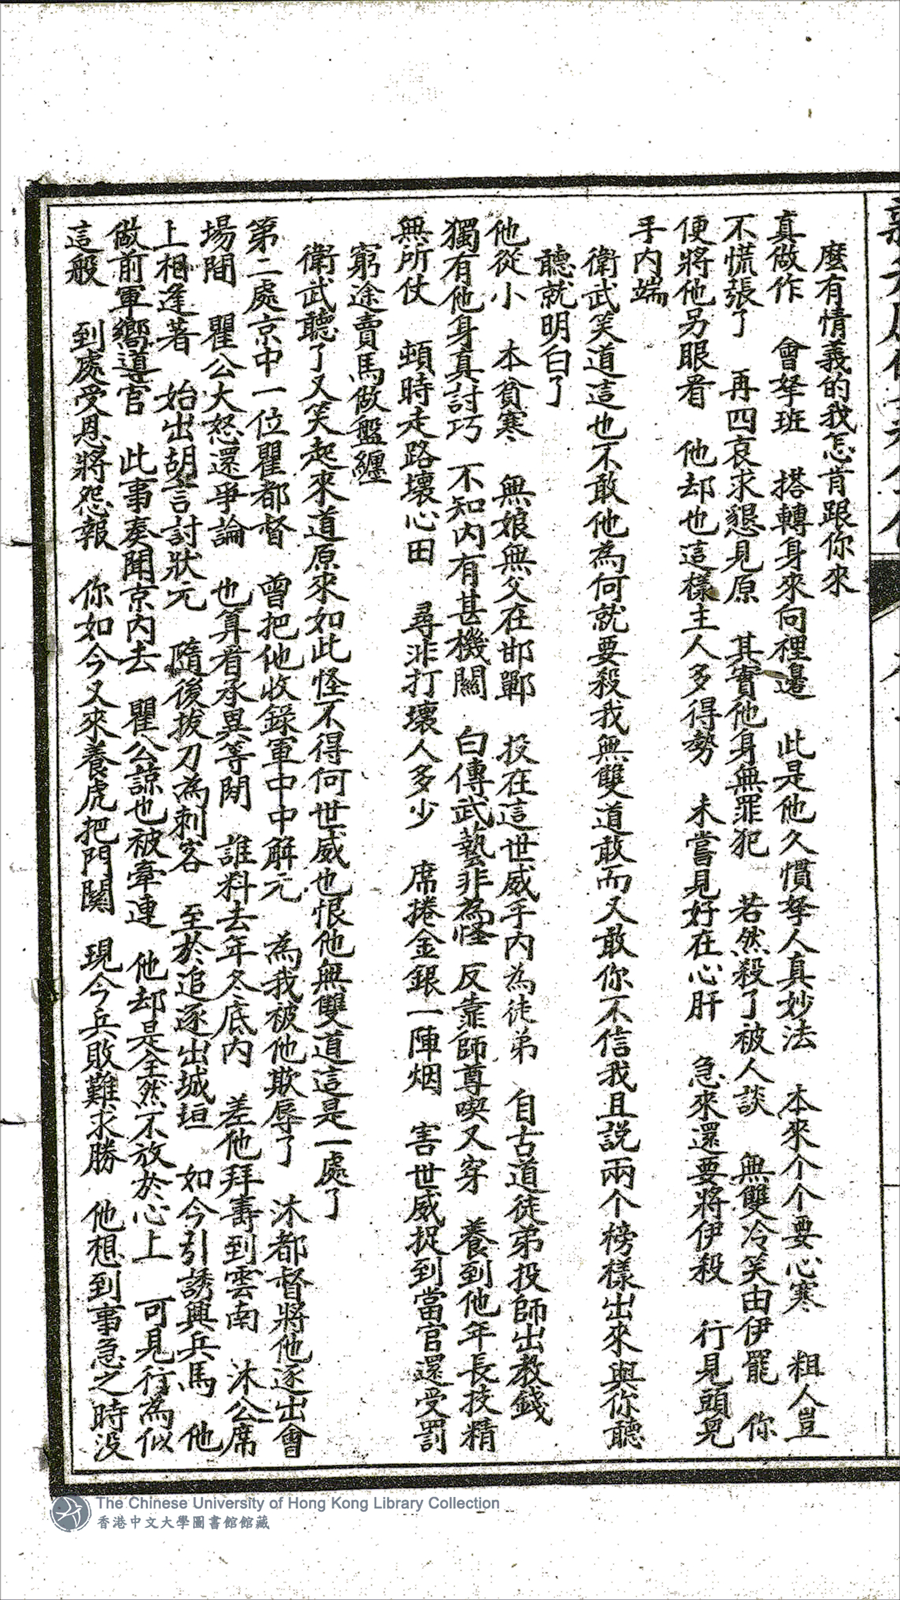 麼有情義的我怎肯跟你來
真做作　會拏班　搭轉身來向裡邊　此是他久慣拏人真妙法　本來个个要心寒　粗人豈
不慌張了　再四哀求懇見原　其實他身無罪犯　若然殺了被人談　無雙冷笑由伊罷　你
便將他另眼看　他却也這樣主人多得勢　未嘗見好在心肝　急來還要將伊殺　行見頭兒
手內端
衛武笑道這也不敢他為何就要殺我無雙道敢而又敢你不信我且説兩个榜樣出來與你聽
聽就明白了
他從小　本貧寒　無娘無父在邯鄲　投在這世威手內為徒弟　自古道徒弟投師出教錢
獨有他身真討巧　不知內有甚機關　白傳武藝非為怪　反靠師尊喫又穿　養到他年長技精
無所仗　頓時走路壞心田　尋非打壞人多少　席捲金銀一陣烟　害世威捉到當官還受罰
窮途賣馬做盤纏
衛武聽了又笑起來道原來如此怪不得何世威也恨他無雙道這是一處了
第二處京中一位瞿都督　曾把他收錄軍中中解元　為我被他欺辱了　沐都督將他逐出會
場間　瞿公大怒還爭論　也算看承異等閒　誰料去年冬底內　差他拜壽到雲南　沐公席
上相逢著　始出胡言討狀元　隨後拔刀為刺客　至於追逐出城垣　如今引誘興兵馬　他
做前軍嚮道官　此事奏聞京內去　瞿公諒也被牽連　他却是全然不放於心上　可見行為似
這般　到處受恩將怨報　你如今又來養虎把門關　現今兵敗難求勝　他想到事急之時没
The Chinese University of Hong Kong Library Collection
香港中文大學圖書館館藏